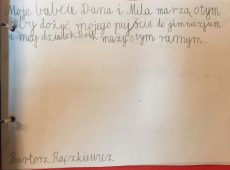 Moje babcie Dana i Mila marzą o tym
żeby dożyć mojego pujścia do gimnazjum
a mój dziadek marzy o tym samym.
Bartosz Rączkiewicz